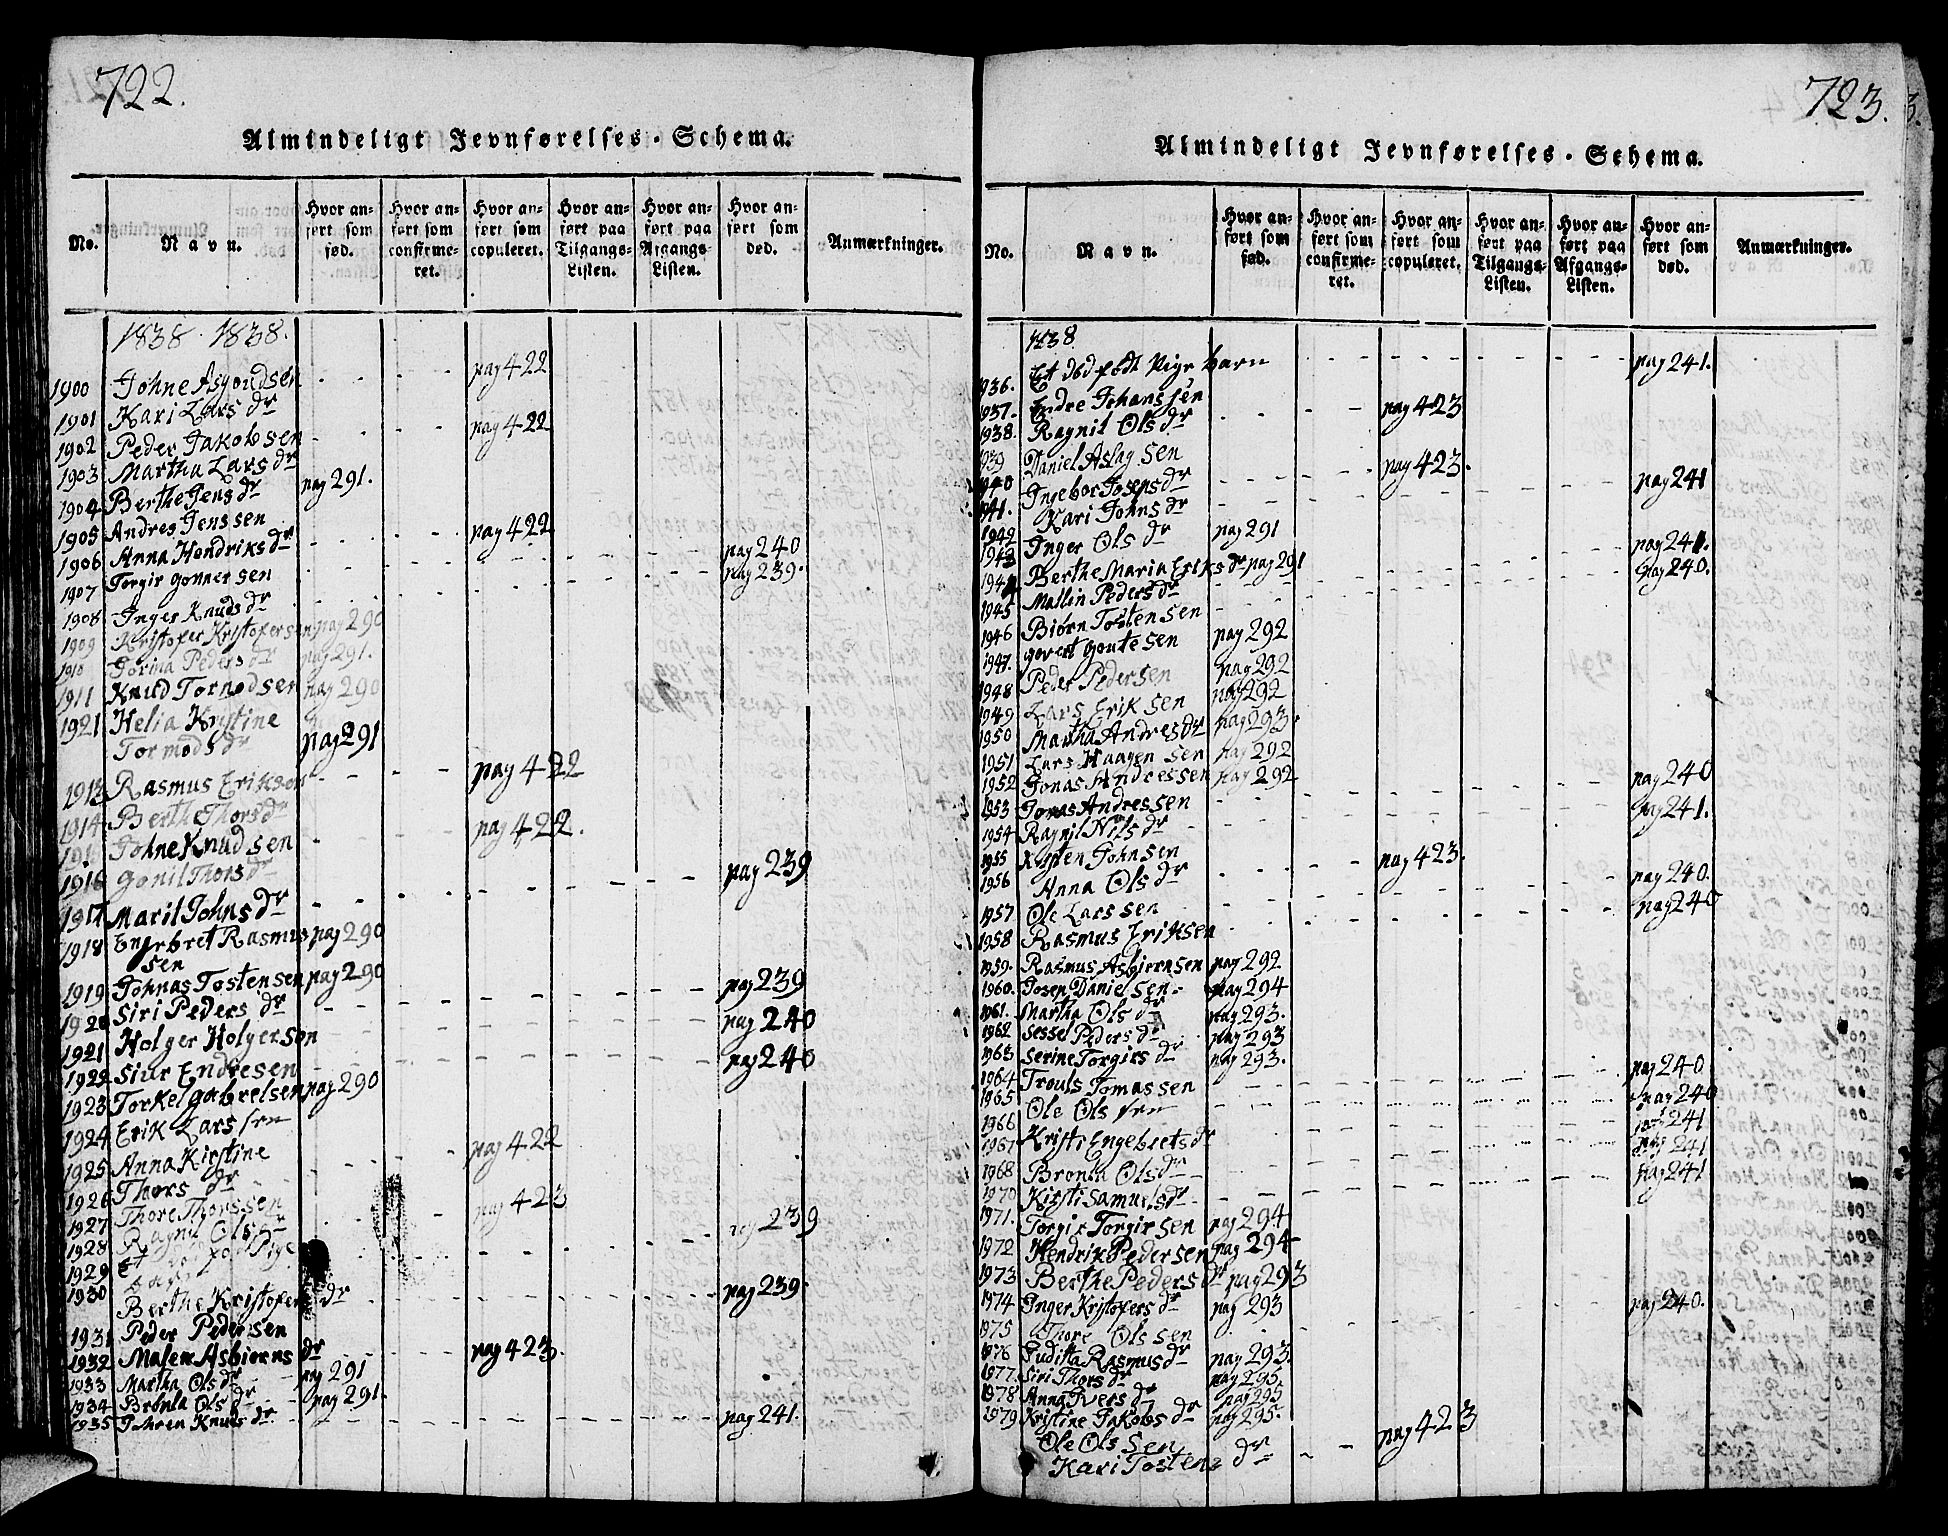 722.
Almindeligt Jevnførelses-Schema.
No.
Navn.
Hvor anført som fød.
Hvor anført som confirmeret.
Hvor anført som copuleret.
Hvor anført paa Tilgangs-Listen.
Hvor anført paa Afgangs-Listen.
Hvor anført som død.
Anmærkninger.
1838 1838.
1900 Johne Asgoudsen pag 422
1901 Kari Lars dr
1902 Peder Jakobsen pag 422
1903 Martha Lars dr
1904 Berthe Jens dr pag 291.
1905 Andres Jenssen
1906 Anna Hendriks dr pag 422
1907 Torgir Gonner sen pag 240
1908 Inger Knuds dr pag 239.
1909 Kristofer Kristofersen pag 290
1910 Gorina Peders dr pag 291.
1911 Knud Tormodsen pag 290
1921 Helia Kristine
Tormods dr pag 291
1913 Rasmus Erikson pag 422
1914 Berthe Thors dr
191 Johne Knudsen pag 422.
1916 Gonil Thors dr
1917 Marit Johns dr pag 239
1918 Engebret Rasmus pag 290
sen
1919 Johnas Tostensen pag 290
1920 Siri Peders dr pag 239
1921 Holger Holgerson pag 240
1922 Siur Endresen pag 240
1923 Torkel Gabrelsen pag 290
1924 Erik Lars sen
1925 Anna Kirstine pag 422
1926 Thors dr
1927 Thore Thorssen pag 423
1928 Ragnil Ols dr
1929 Et Pige pag 239
1930 Berthe Kristofers dr pag 239.
1931 Peder Pedersen
1932 Malene Asbierns dr pag 423.
1933 Martha Ols dr pag 291
1934 Bronla Ols dr pag 291.
1935 Knuds dr pag 241.
723.
Almindeligt Jevnførelses-Schema.
No.
Navn.
Hvor anført som fød.
Hvor anført som confirmeret.
Hvor anført som copuleret.
Hvor anført paa Tilgangs-Listen.
Hvor anført paa Afgangs-Listen.
Hvor anført som død.
Anmærkninger.
1838
1936. Et død født Pige barn pag 241.
1937. Endre Johanssen pag 423
1938. Ragnil Ols dr
1939 Daniel Aslag sen pag 423.
1940 Ingebor Joseps dr pag 241
1941. Kari Johns dr
1942 Inger Ols dr pag 291
1943 Berthe Maria Eriks dr pag 291 pag 241.
1944 Mallin Peders dr pag 240.
1945 Biørn Tosten sen
1946 Govert Goutesen pag 292
1947. Peder Pedersen pag 292
1948 Lars Erik sen pag 292
1949 Martha Andres dr pag 293.
1950 Lars Haagen sen pag 292
1951 Jonas Andressen pag 292
1952 Jonas Andressen pag 240
1953 Ragnil Nils dr pag 241.
1954 Kristen Johnsen pag 423.
1955 Anna Ols dr
1956 Ole Lars sen pag 240.
1957 Rasmus Eriksen pag 240
1958 Rasmus Asbiernsen pag 292
1959. Josen Danielsen pag 294
1960. Martha Ols dr pag 293.
1961. Sessel Peders dr pag 293
1962 Serine Torgirs dr pag 293.
1963 Trouls Tomassen pag 240.
1964 Ole Ols sen pag 240
1965 Kristi Engebrets dr pag 241
1966 Bronla Ols dr pag 241
1967 Kirsti Samuels dr pag 241
1968 Torgir Torgirsen pag 294
1970 Hendrik Pedersen pag 294
1971. Berthe Peders dr pag 293
1972 Inger Kristofers dr pag 293 pag 240.
1973 Thore Ols sen
1974 Juditta Rasmus dr pag 293.
1975 Siri Thors dr pag 295.
1976 Anna Ivers dr pag 295
1977 Kristine Jakobs dr pag 295.
1978 Ole Ols sen pag 423
1979 Kari Tostens dr